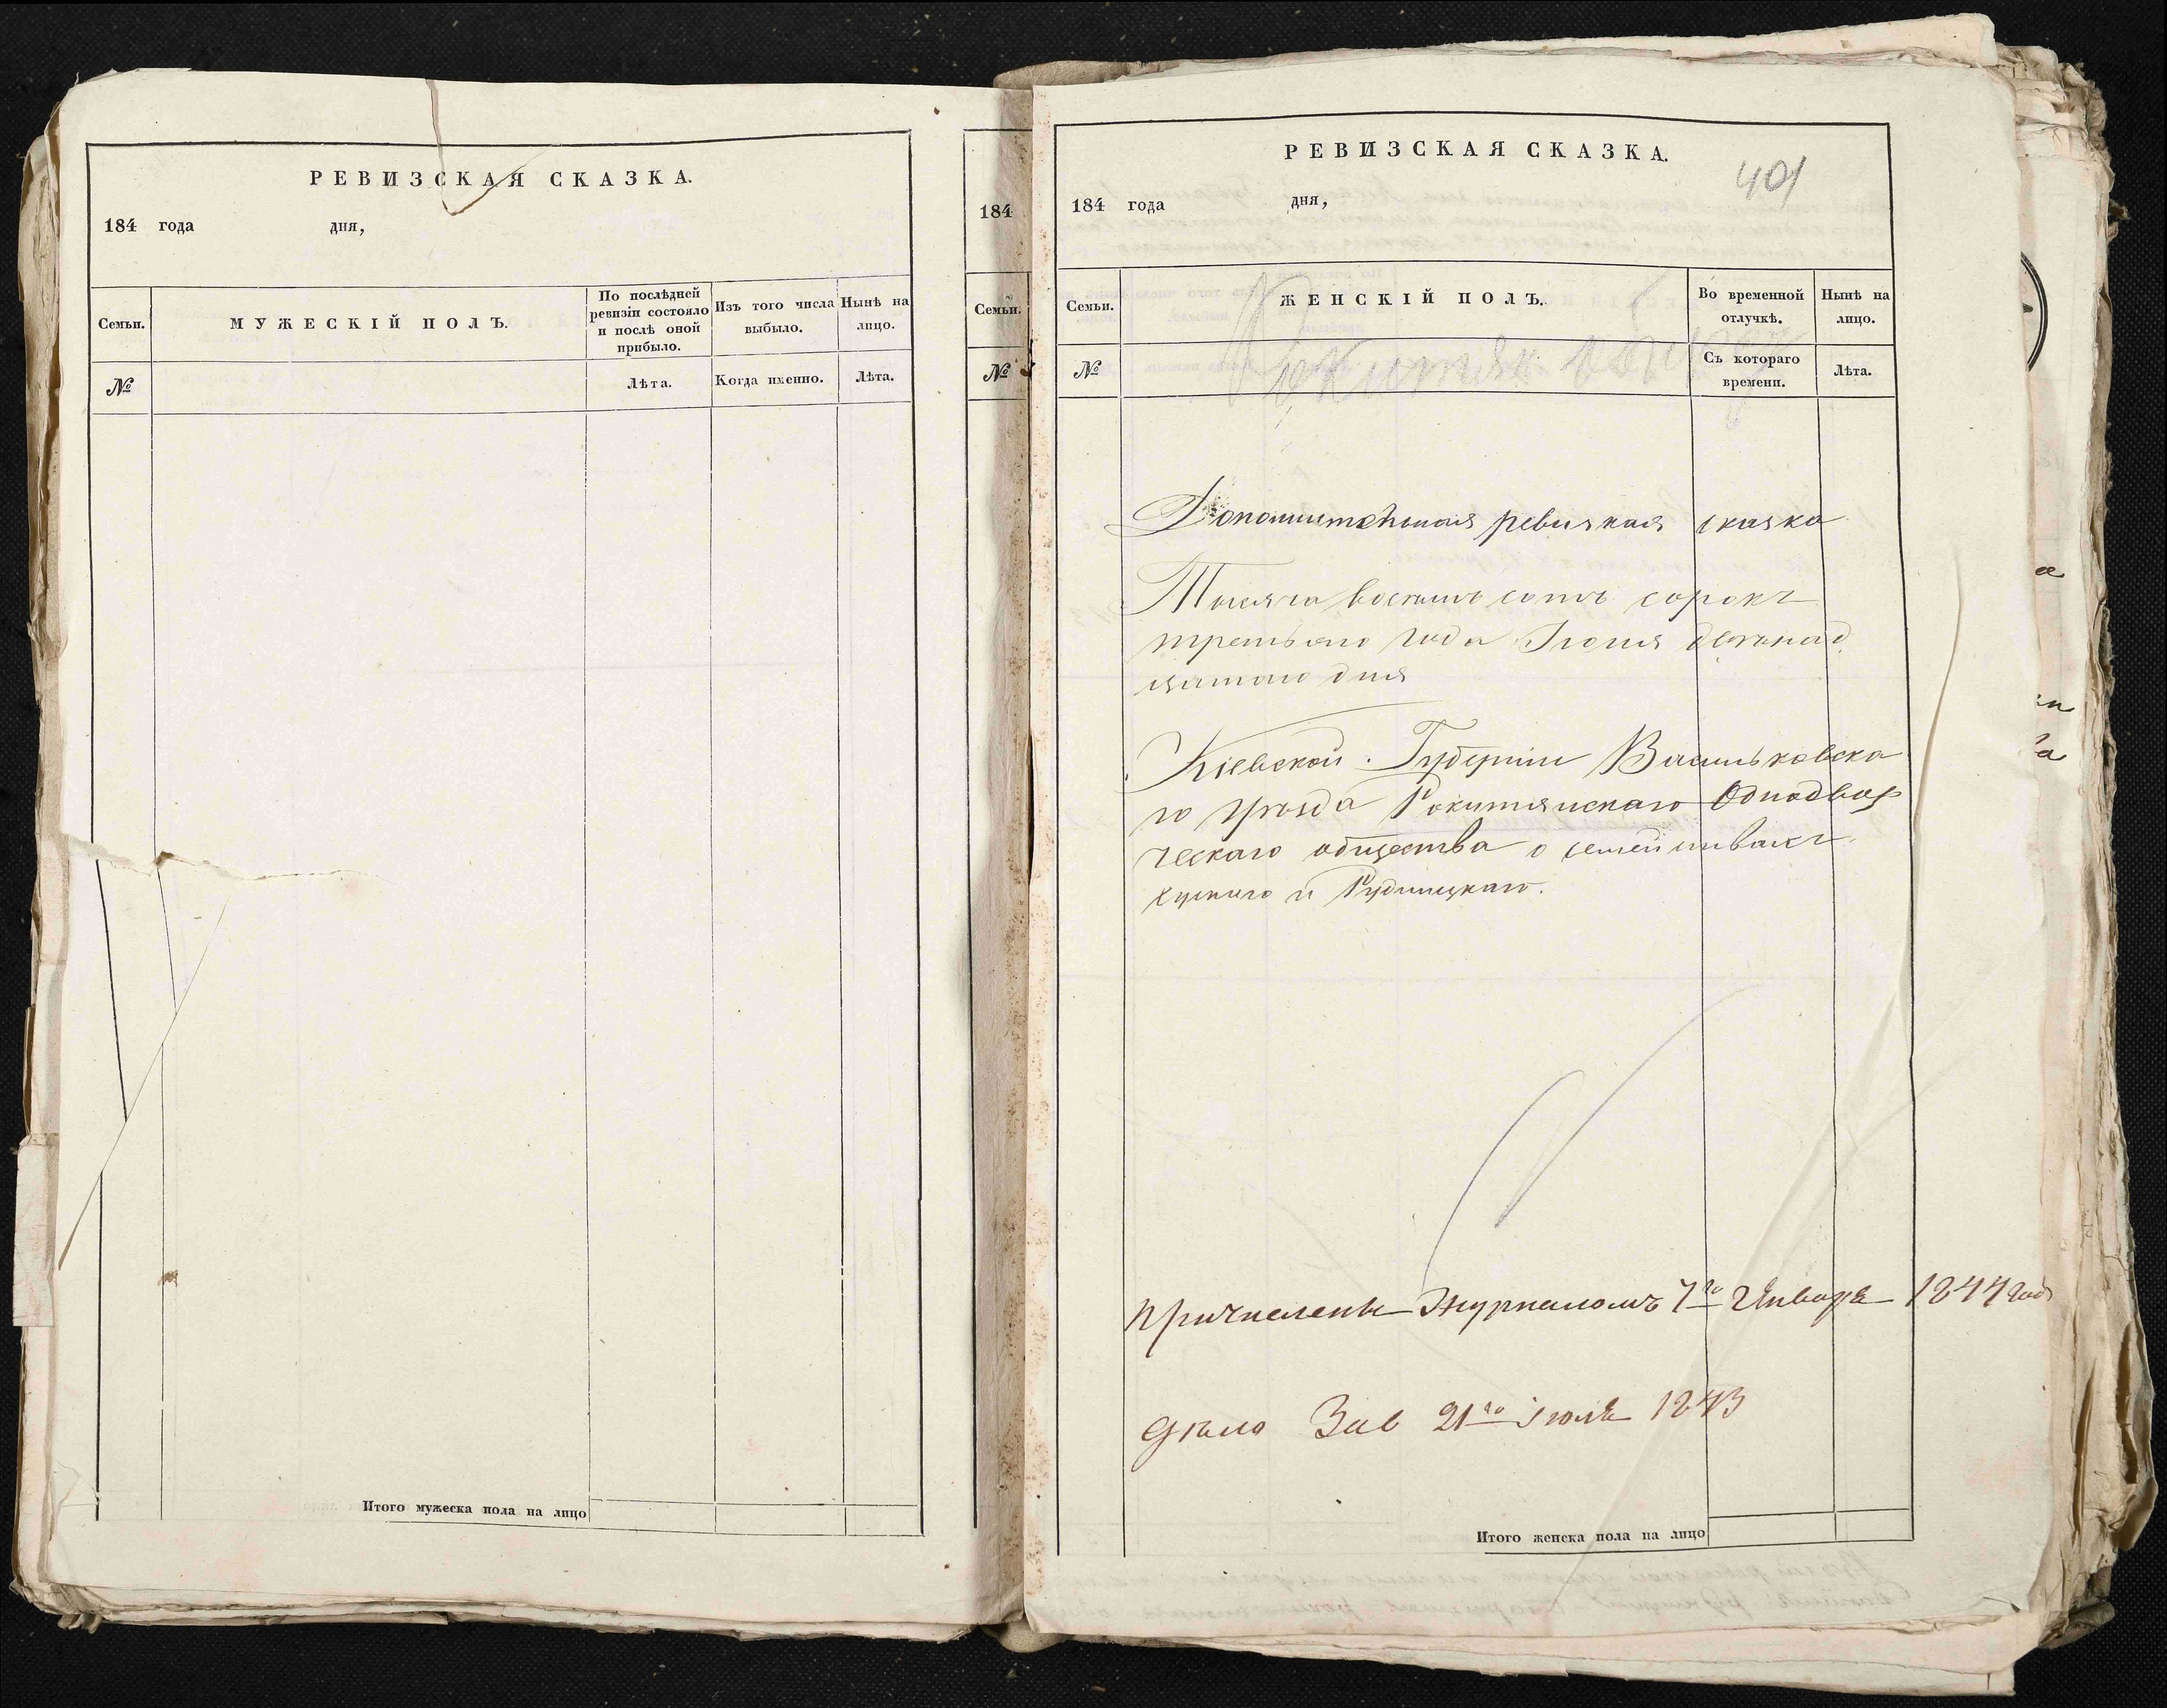 РЕВИЗСКАЯ СКАЗКА.
184 года дня,
Семьи. МУЖЕСКІЙ ПОЛЪ. По послѣдней ревизіи состояло и послѣ оной прибыло. Изъ того числа выбыло. Нынѣ на лицо.
№ Лѣта. Когда именно. Лѣта.
Итого мужеска пола на лицо
184
Семьи.
№
РЕВИЗСКАЯ СКАЗКА.
401
184 года дня,
Семьи. ЖЕНСКІЙ ПОЛЪ. Во временной отлучкѣ. Нынѣ на лицо.
№ Съ котораго времени. Лѣта.
Дополнительная ревизкая сказка
Тысяча восемь сотъ сорокъ
третьяго года Іюня двѣнад
цатого дня
Кіевской Губерніи Васильковска
го уѣзда Рокитянскаго Однодвор
ческаго общества о семействахъ
и Рудницкаго.
Причислены Журналомъ 7го Января 1844 года
Дѣло Зав 21го Іюля 1843
Итого женска пола на лицо